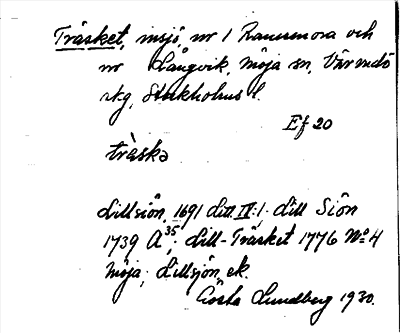 Träsket, insjö, nr 1 Ramsmora och
nr Långvik, Möja sn, Värmdö
skg, Stockholms l.
Ef 20
tràskə
Lillsiön, 1691 Litt. IV:1; Lill Siön
1739 A 35; Lill-Träsket 1776 No 4
Möja; Lillsjön, ek.
Gösta Lundberg 1930.